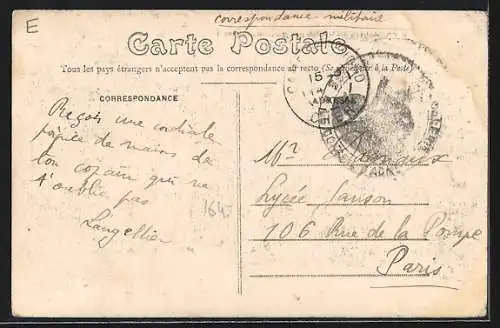 E
correspondance militaire
Carte Postale
Tous les pays étrangers n'acceptent pas la correspondance au recto (Se renseigner à la Poste)
CORRESPONDANCE
Reçois une cordiale
poignée de mains de
ton copain qui ne
t'oublie pas
Langellier
1645
15
Mr
Lycée Janson
106 Rue de la Pompe
Paris